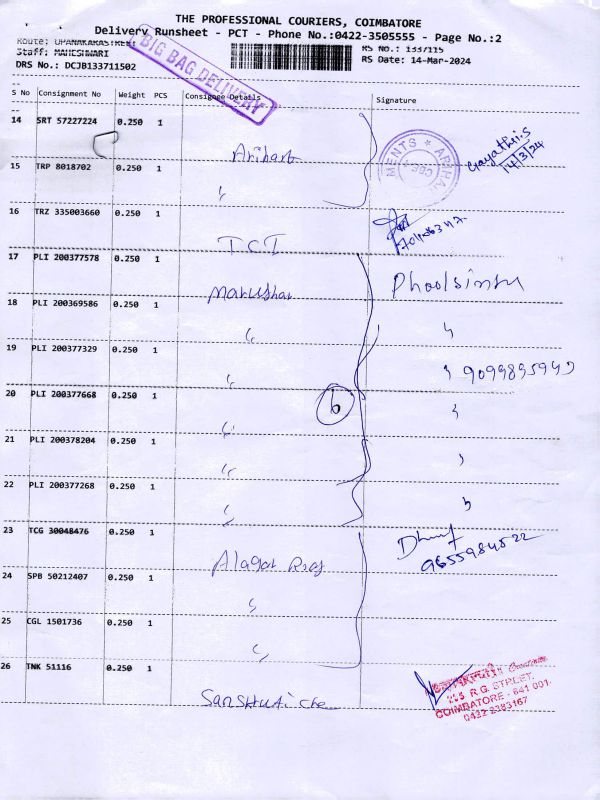 THE PROFESSIONAL COURIERS, COIMBATORE
Delivery Runsheet - PCT - Phone No.:0422-3505555 - Page No.:2
Route: UPANAKARASTREET
RS No.: 1337115
Staff: MAHESHWARI
RS Date: 14-Mar-2024
DRS No.: DCJB133711502
BIG BAG DELIVERY
S No Consignment No Weight PCS Consignee Details Signature
14 SRT 57227224 0.250 1
Arihant
MENTS ★ ARIHA
CBE
Gayathri.S
14/3/24
15 TRP 8018702 0.250 1
16 TRZ 335003660 0.250 1
TCI
17 PLI 200377578 0.250 1
Marushar
Phoolsingh
18 PLI 200369586 0.250 1
19 PLI 200377329 0.250 1
9099895949
20 PLI 200377668 0.250 1
6
21 PLI 200378204 0.250 1
22 PLI 200377268 0.250 1
23 TCG 30048476 0.250 1
Alagar Raj
9655984522
24 SPB 50212407 0.250 1
25 CGL 1501736 0.250 1
26 TNK 51116 0.250 1
R.G. STREET,
COIMBATORE - 641 001.
0422 2383167